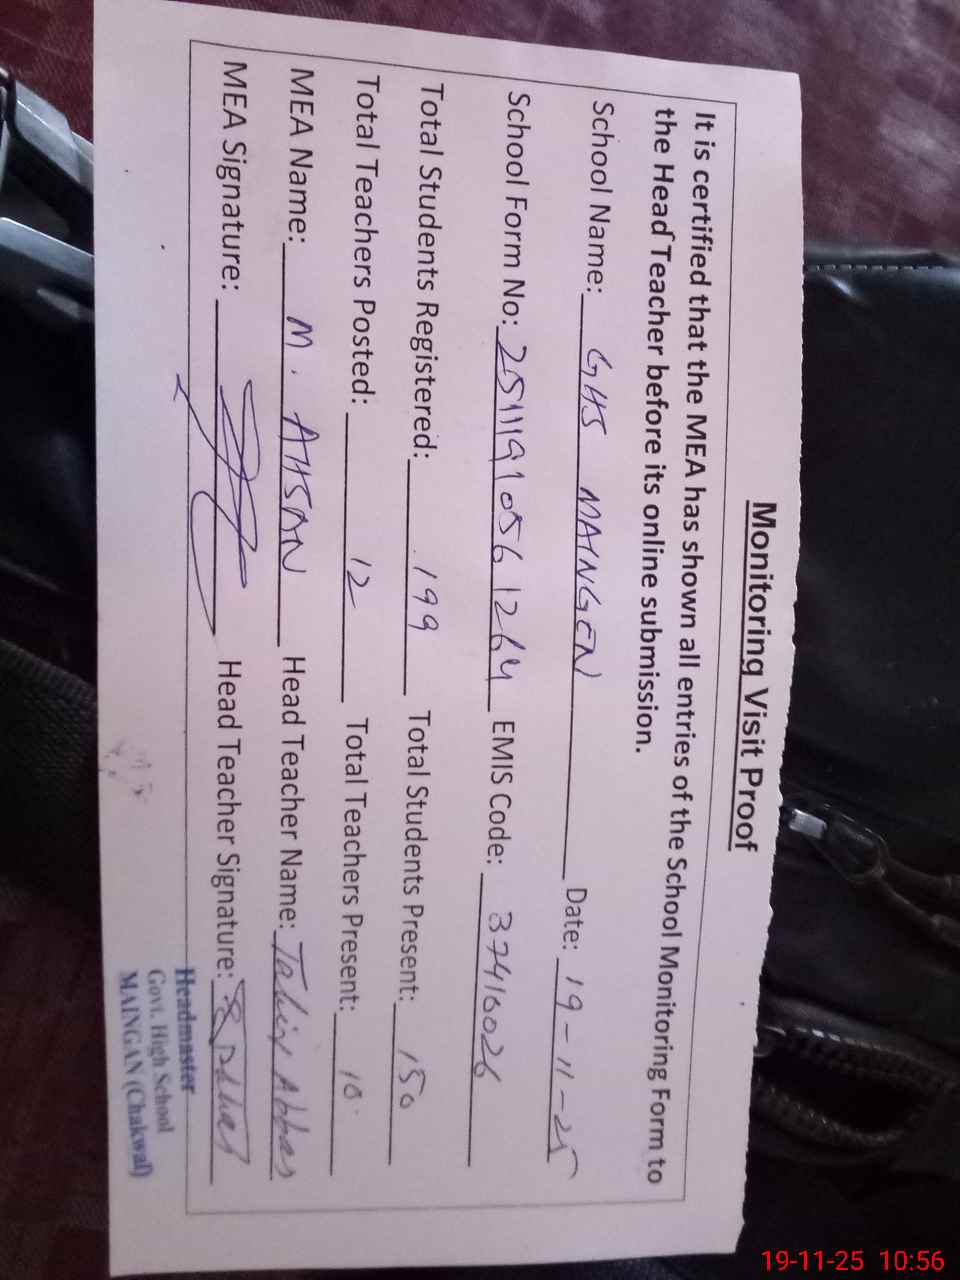 Monitoring Visit Proof
It is certified that the MEA has shown all entries of the School Monitoring Form to
the Head Teacher before its online submission.
School Name: GHS MAINGEN Date: 19-11-25
School Form No: 251119105612 64 EMIS Code: 37410026
Total Students Registered: 199 Total Students Present: 150
Total Teachers Posted: 12 Total Teachers Present: 10
MEA Name: M. AHSAN Head Teacher Name: Tahir Abbas
MEA Signature: Head Teacher Signature:
Headmaster
Govt. High School
MAINGAN (Chakwal)
19-11-25 10:56